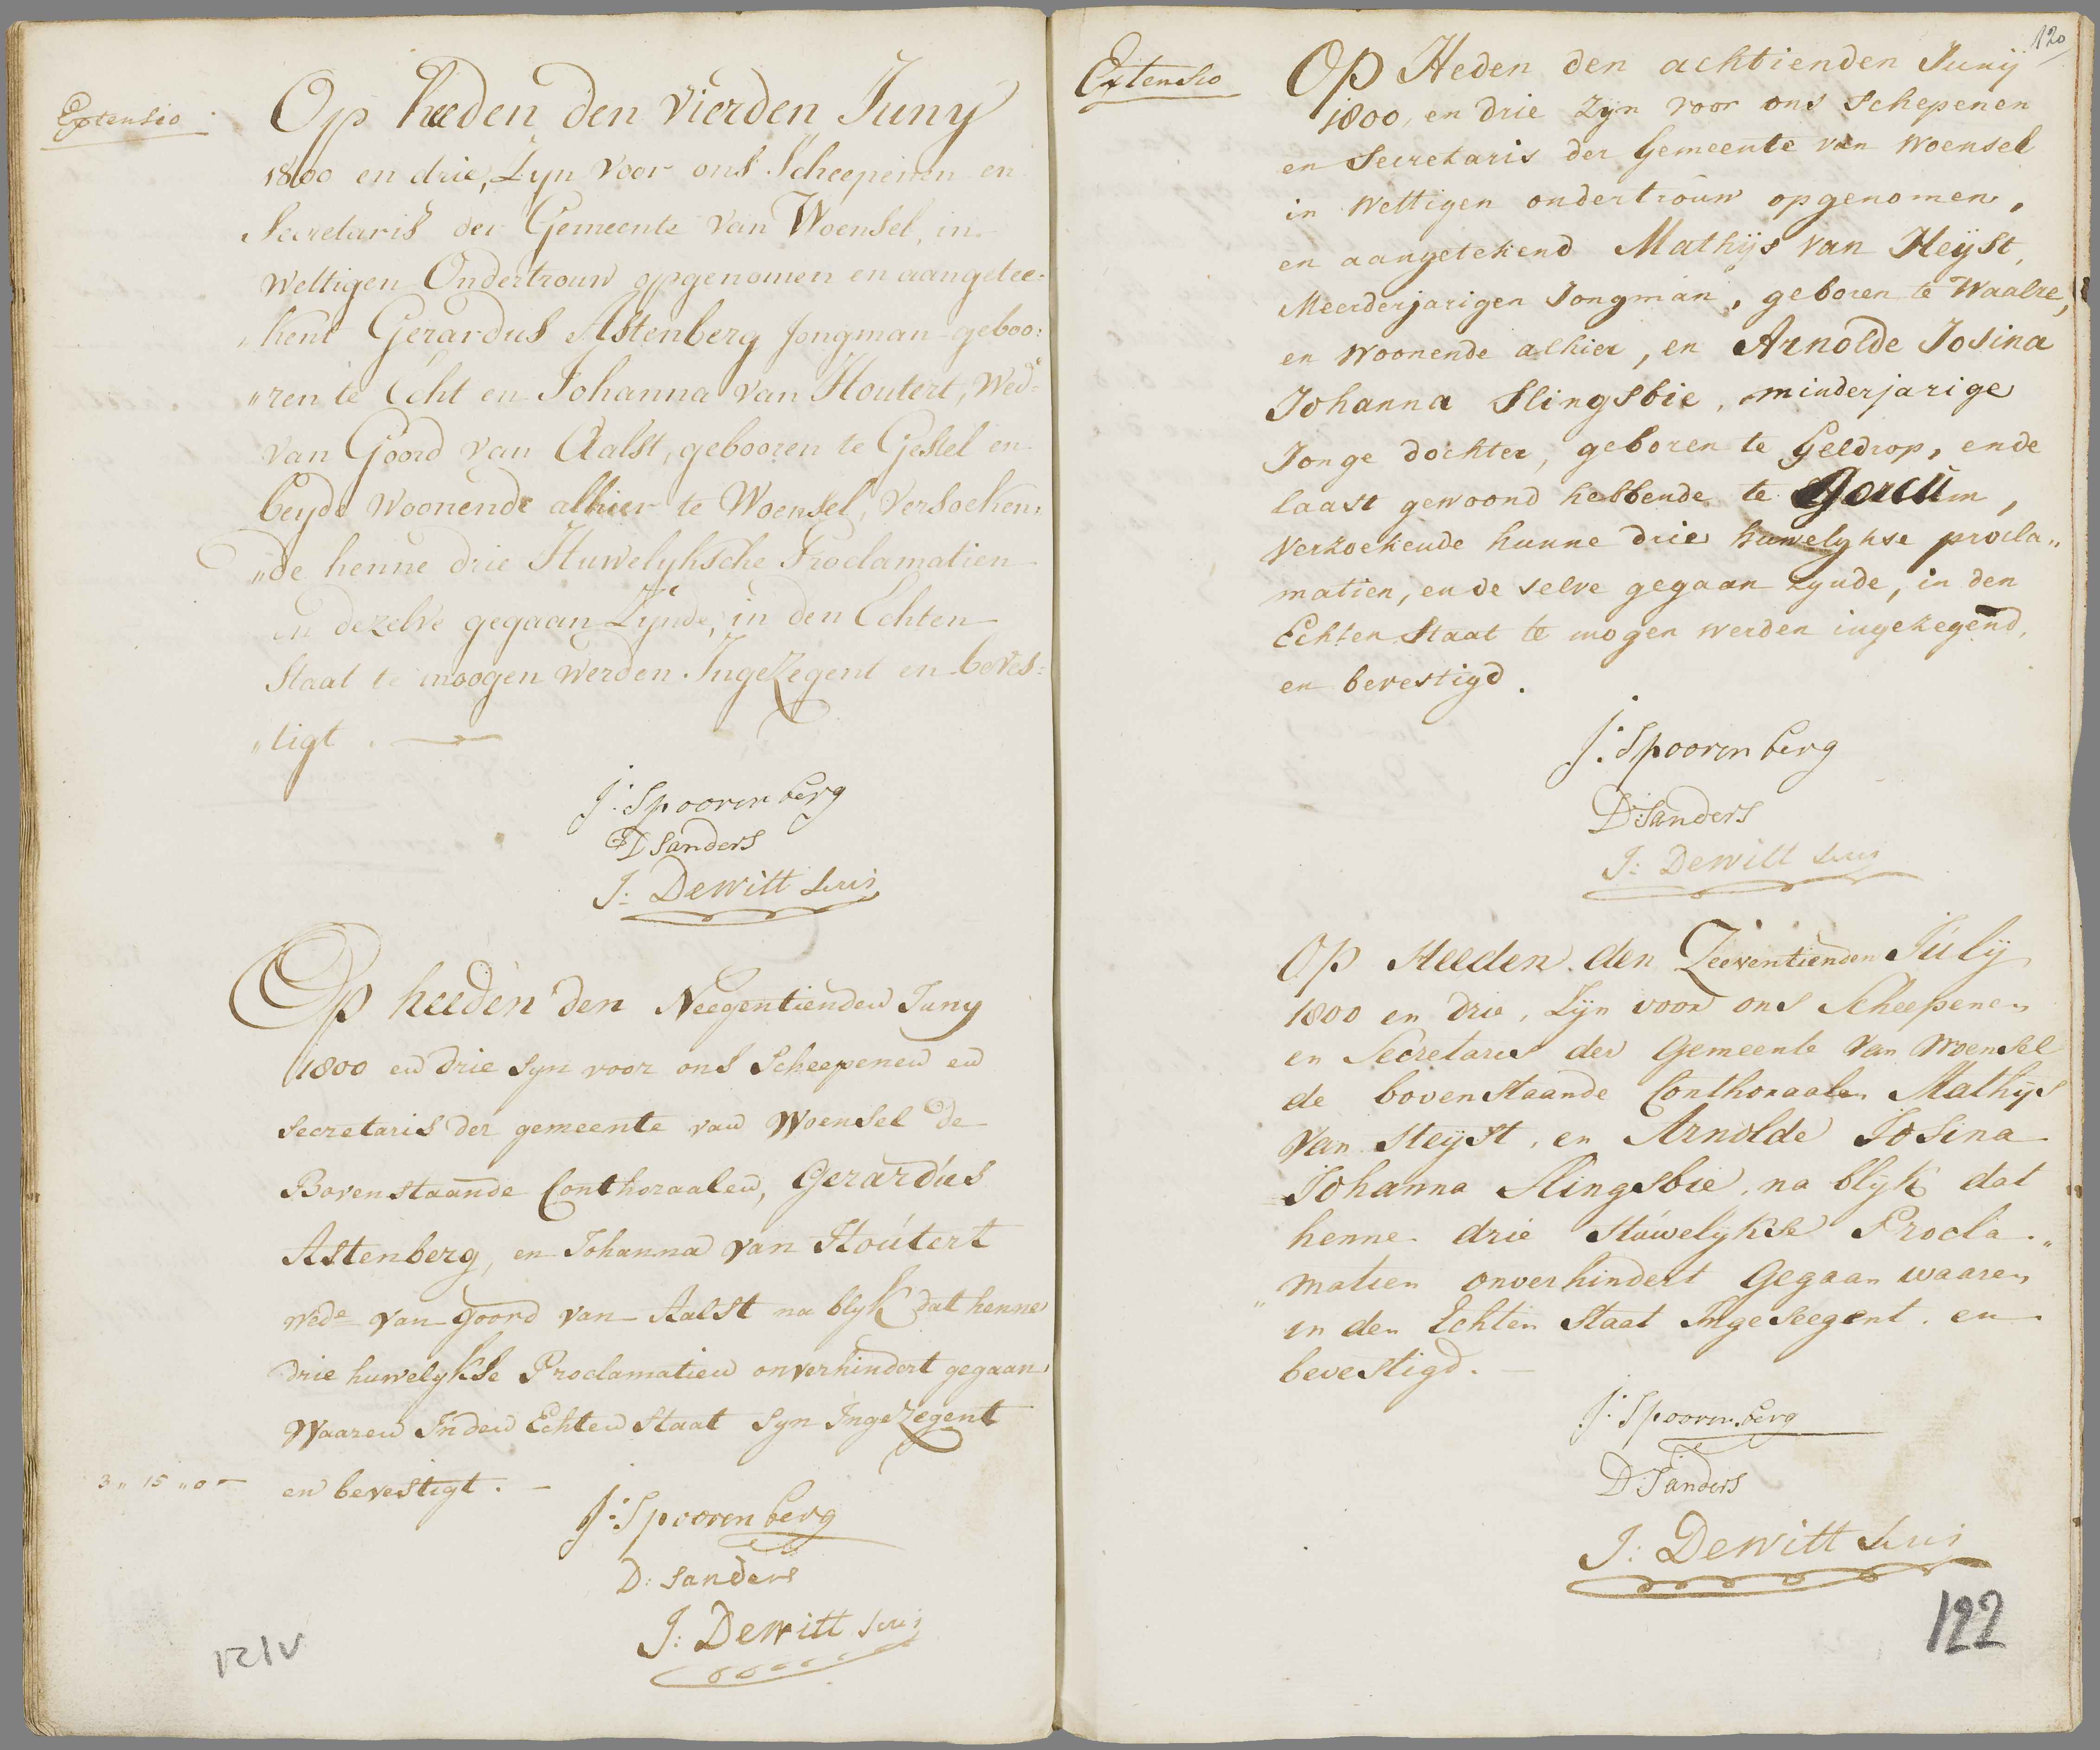 Extensio
Op heeden den vierden Juny
1800 en drie, Zyn voor ons Scheepenen en
Secretaris der Gemeente van Woensel, in
wettigen Ondertrouw opgenomen en aangetee=
„kent Gerardus Astenberg Jongman geboo=
„ren te Echt en Johanna van Houtert, Wede
van Goord van Aalst, gebooren te Gestel en
beyde woonende alhier te Woensel, versoeken„
„de henne drie Huwelyksche Proclamatien
en dezelve gegaan Zynde, in den Echten
Staat te moogen werden Ingezegent en beves=
„tigt.
J: Spoorenberg
D Sanders
J: Dewitt Secris
Op heeden den Neegentienden Juny
1800 en drie syn voor ons Scheepenen en
secretaris der gemeente van Woensel de
Bovenstaande Conthoraalen, Gerardus
Astenberg, en Johanna van Houtert
wede van Goord van Aalst na blyk dat henne
drie huwelykse Proclamatien onverhindert gegaan
Waaren In den Echten Staat syn Ingezegent
3 „ 15 „ 0 -
en bevestigt. -
J: Spoorenberg
D: Sanders
J: Dewitt Secris
121V
120
Extensio
Op Heden den achtienden Junij
1800, en drie zyn voor ons Schepenen
en Secretaris der Gemeente van Woensel
in Wettigen ondertrouw opgenomen,
en aangetekend Mathijs van Heijst,
Meerderjarigen Jongman, geboren te Waalre,
en woonende alhier, en Arnolde Josina
Johanna Slingsbie, minderjarige
Jonge dochter, geboren te Geldrop, ende
laast gewoond hebbende te Gorcum,
Verzoekende hunne drie huwelykse procla„
matien, en de selve gegaan zynde, in den
Echten Staat te mogen werden ingezegend,
en bevestigd.
J: Spoorenberg
D: Sanders
J: Dewitt Secris
Op Heeden den Zeeventienden Julij
1800 en drie, Zyn voor ons Scheepenen
en Secretaris der Gemeente van Woensel
de bovenstaande Conthoraalen Mathijs
van Heijst, en Arnolde Josina
Johanna Slingsbie, na blyk dat
henne drie Huwelykse Procla„
„matien onverhindert Gegaan waaren
in den Echten Staat Ingeseegent en
bevestigd. -
J: Spoorenberg
D: Sanders
J: Dewitt Secris
122